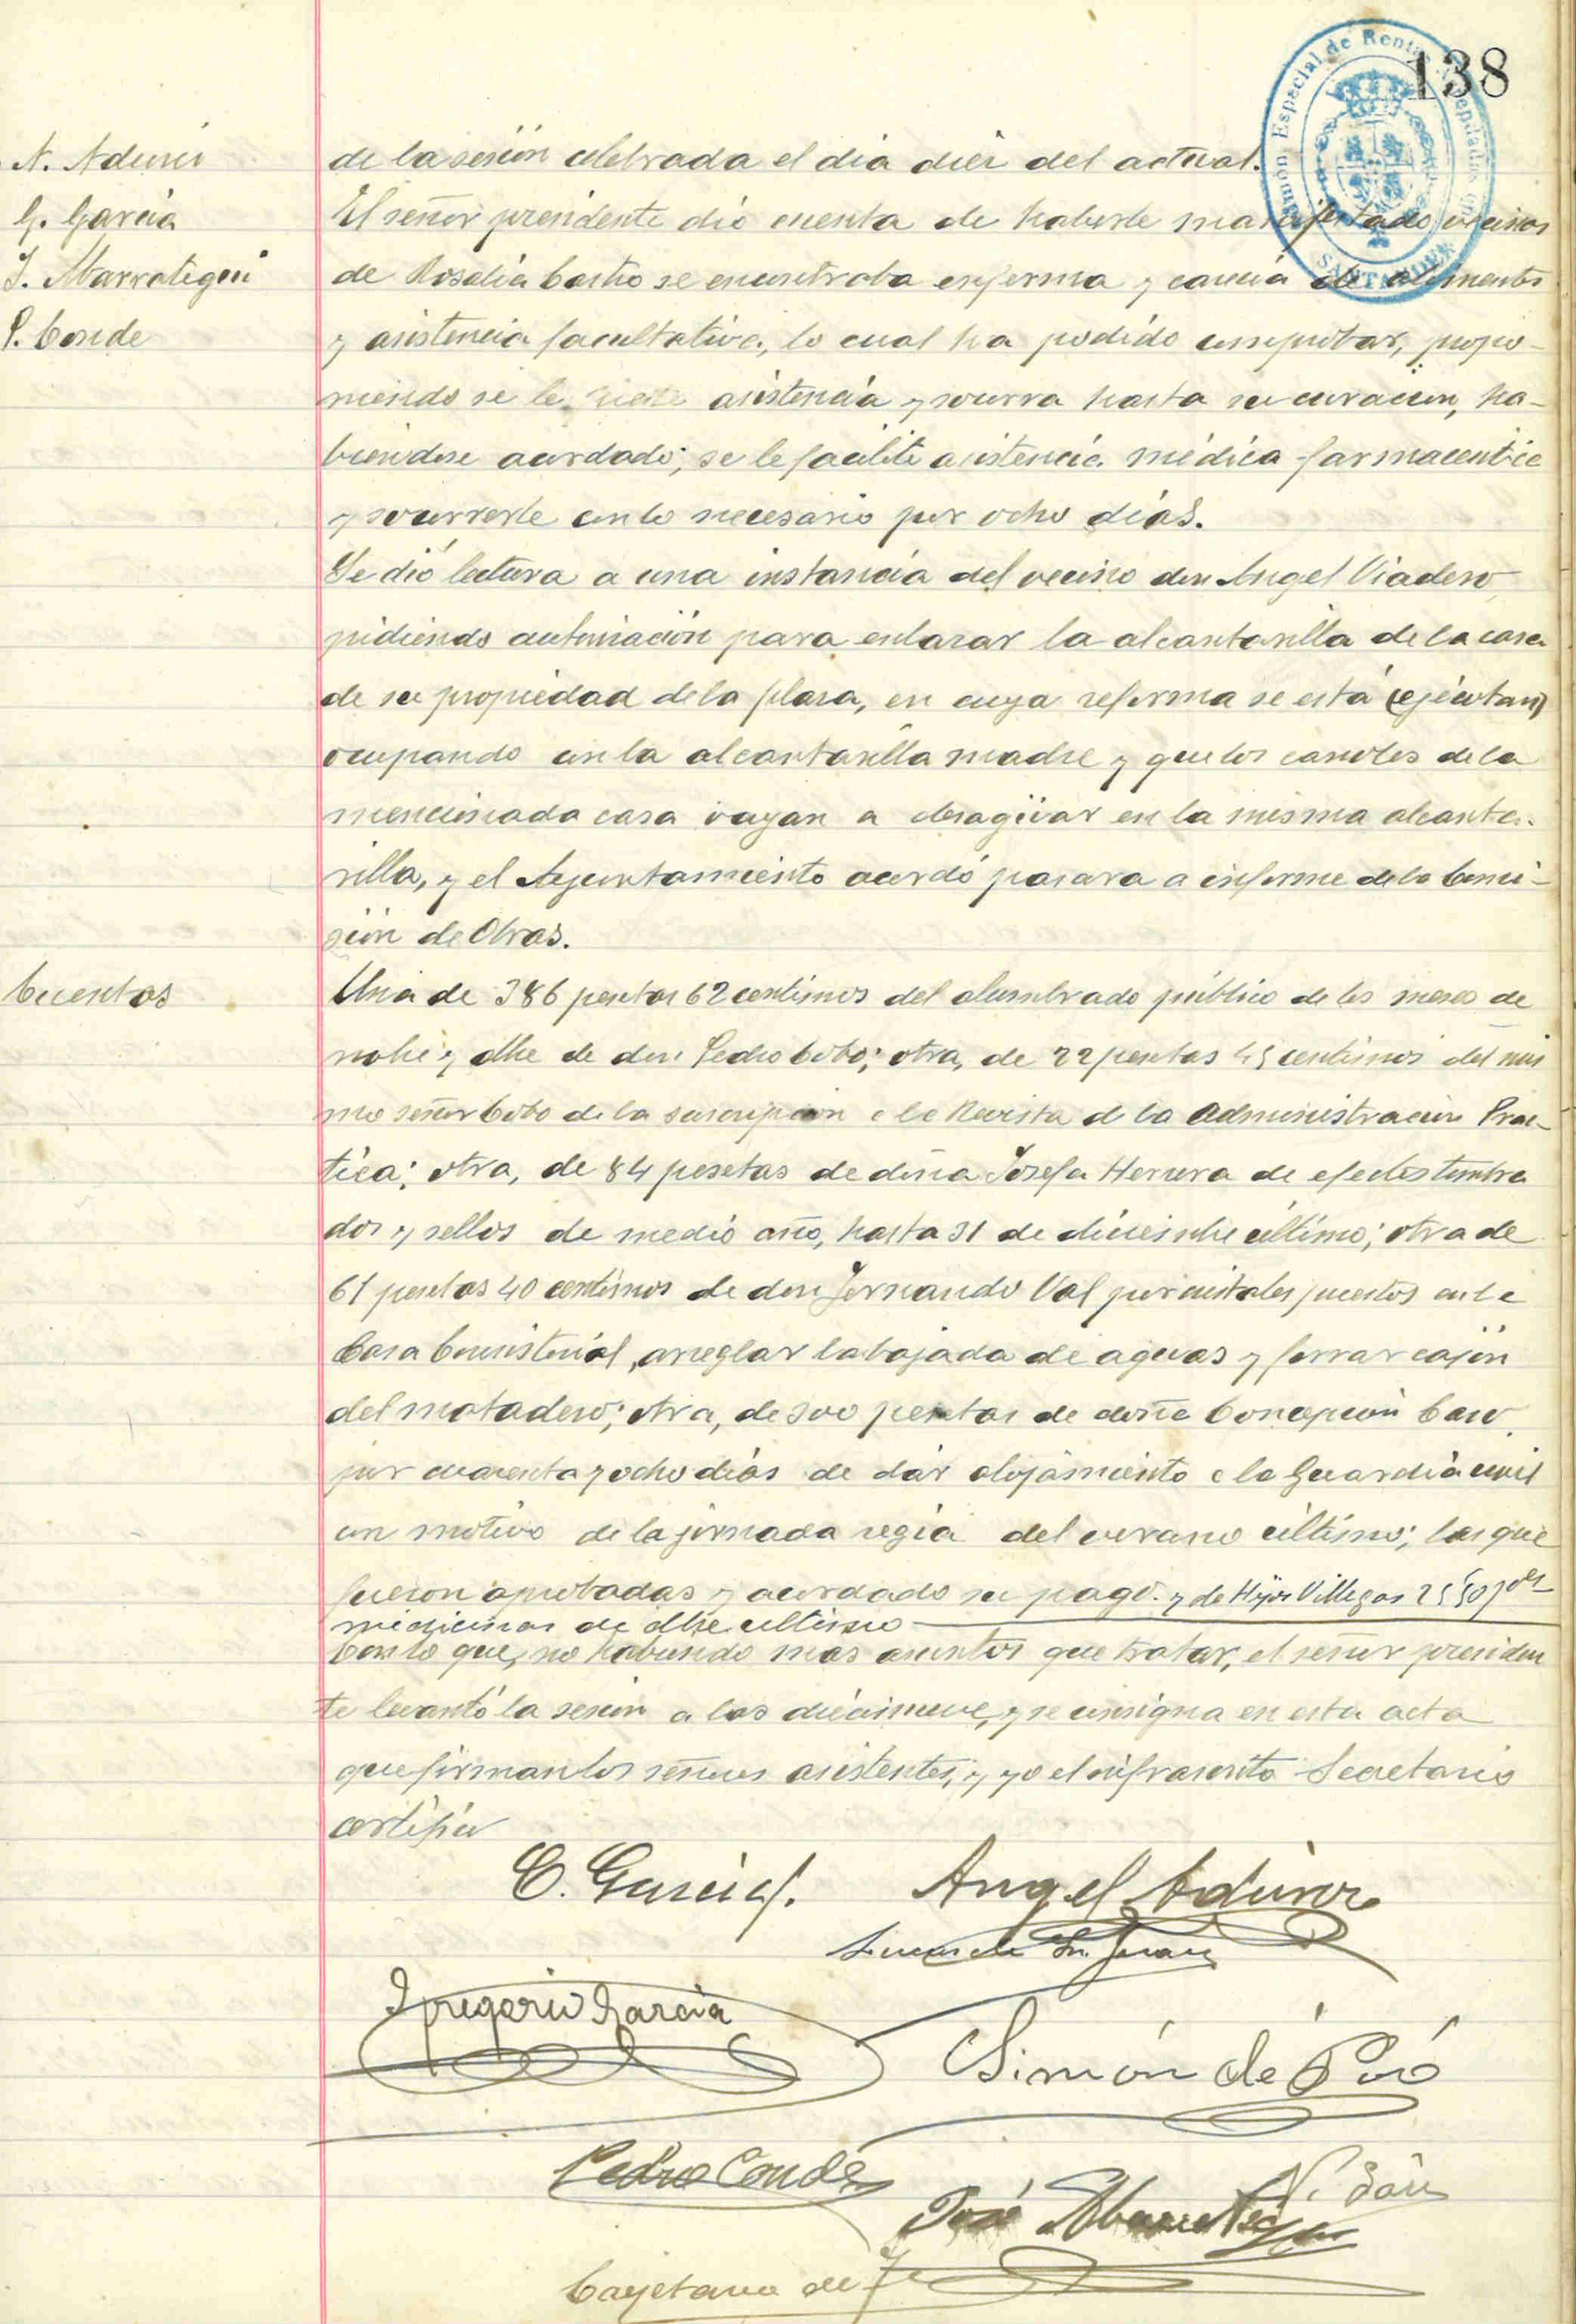 138
Especial de Rentas
SANTANDER
A. Aduriz
G. García
J. Abarrategui
P. Conde
de la sesión celebrada el día diez del actual.
El señor presidente dió cuenta de haberle manifestado vecinos
de Rosalía Castro se encontraba enferma y carecía de alimentos
y asistencia facultativa, lo cual ha podido comprobar, propo-
niendo se le preste asistencia y socorra hasta su curación, ha-
biendose acordado, se le facilite asistencia médica farmaceutica
y socorrerle con lo necesario por ocho días.
Se dió lectura a una instancia del vecino don Angel Viadero
pidiendo autorización para enlazar la alcantarilla de la casa
de su propiedad de la plaza, en cuya reforma se está (ejecutan)
ocupando con la alcantarilla madre y que los canales de la
mencionada casa vayan a desagüar en la misma alcanta-
rilla, y el Ayuntamiento acordó pasara a informe de la Comi-
sión de Obras.
Cuentas
Una de 386 pesetas 62 centimos del alumbrado público de los meses de
nobe y dbre de don Pedro Cobo; otra, de 22 pesetas centimos del mis
mo señor Cobo de la suscripcion a la Revista de la Administracion Prac-
tica; otra, de 84 pesetas de doña Josefa Herrera de efectos timbra
dos y sellos de medio año, hasta 31 de diciembre último; otra de
61 pesetas 40 centimos de don Fernando Val por cristales puestos en la
Casa Consistorial, arreglar la bajada de aguas y forrar cajón
del matadero; otra, de 300 pesetas de doña Concepción Caso
por cuarenta y ocho días de dar alojamiento a la Guardia civil
con motivo de la jornada regia del verano último; las que
fueron aprobadas y acordado su pago. y de Hijos Villegas
medicinas de dbre ultimo
Con lo que, no habiendo mas asuntos que tratar, el señor presiden
te levantó la sesión a las diecinueve, y se consigna en esta acta
que firman los señores asistentes, y yo el infrascrito Secretario
certifico
C. García.
Angel Aduriz
Gregorio García
Simón de Rió
Pedro Conde
José Abarrategui
Cayetano de